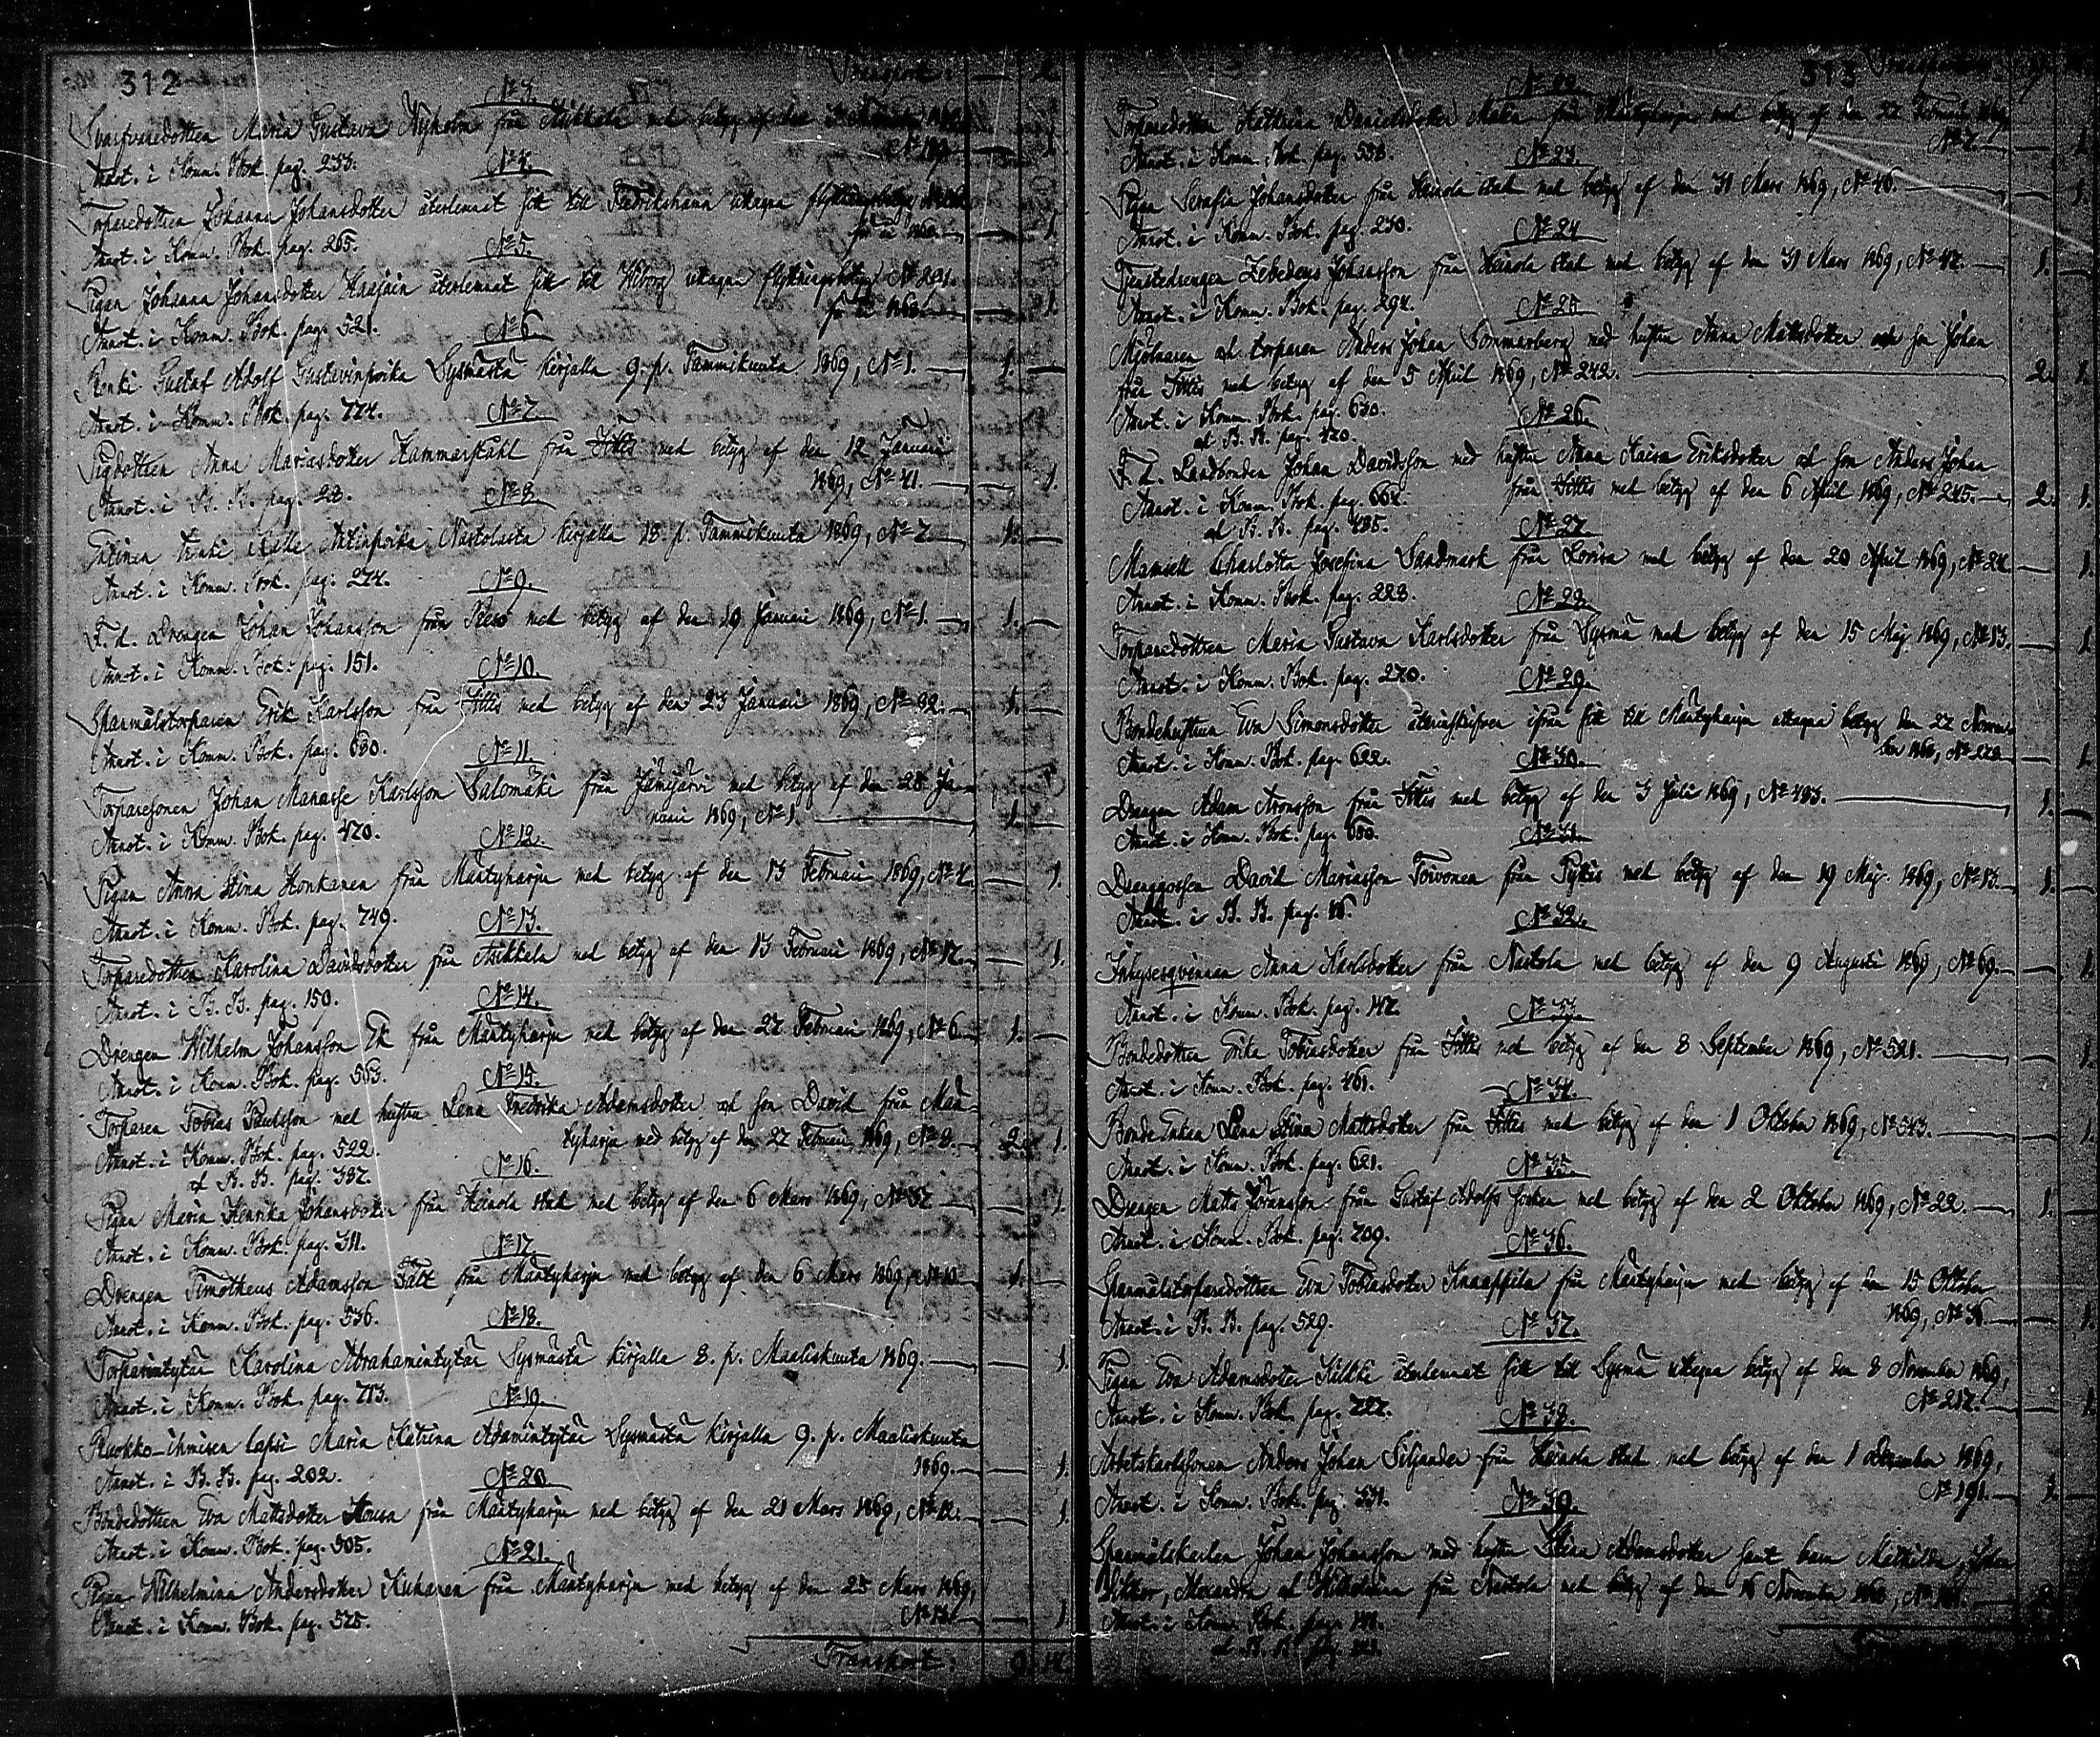 312
Transport.
N:o 3.
Svarfvaredottren Maria Gustava Nyholm från Asikkala med betyg af den
Annot. i Komm. Bok. pag. 233.
N:o 4.
Torparedottren Johanna Johansdotter återlemnat sitt till Fredrikshamn uttagna flyttningsbetyg
för år 1868.
Annot. i Komm. Bok. pag. 265.
N:o 5.
Pigan Johanna Johansdotter Haajain återlemnat sitt till Wiborg uttagna flyttningsbetyg N:o 291.
för år 1868.
Annot. i Komm. Bok. pag. 521.
N:o 6.
Renki Gustaf Adolf Gustavinpoika Sysmästä kirjalla 9. p. Tammikuuta 1869, N:o 1. 1.
Annot. i Komm. Bok. pag. 774.
N:o 7.
Pigdottren Anna Mariasdotter Hammarståhl från Iittis med betyg af den 12 Januari
1869, N:o 41. 1.
Annot. i B. B. pag. 22.
N:o 8.
Entinen renki Kalle Anttinpoika Nastolasta kirjalla 18. p. Tammikuuta 1869, N:o 7. 1.
Annot. i Komm. Bok. pag. 274.
N:o 9.
F. d. Drengen Johan Johansson från med betyg af den 19 Januari 1869, N:o 1. 1.
Annot. i Komm. Bok. pag. 151.
N:o 10.
Spanmålstorparen Erik Karlsson från Iittis med betyg af den 23 Januari 1869, N:o 92. 1.
Annot. i Komm. Bok. pag. 630.
N:o 11.
Torparesonen Johan Manasse Karlsson Salomäki från Jämijärvi med betyg af den 28 Ja-
nuari 1869, N:o 1. 1.
Annot. i Komm. Bok. pag. 470.
N:o 12.
Pigan Anna Stina Honkanen från Mäntyharju med betyg af den 13 Februari 1869, N:o 4. 1.
Annot. i Komm. Bok. pag. 749.
N:o 13.
Torparedottren Karolina Davidsdotter från Asikkala med betyg af den 13 Februari 1869, N:o 17. 1.
Annot. i B. B. pag. 159.
N:o 14.
Drengen Wilhelm Johansson Ek från Mäntyharju med betyg af den 27 Februari 1869, N:o 6. 1.
Annot. i Komm. Bok. pag. 563.
N:o 15.
Torparen Tobias Paulsson med hustru Lena Fredrika Adamsdotter och son David från Män-
tyharju med betyg af den 27 Februari 1869, N:o 8. 2. 1.
Annot. i Komm. Bok. pag. 522.
och B. B. pag. 337.
N:o 16.
Pigan Maria Henrika Johansdotter från Heinola stad med betyg af den 6 Mars 1869, N:o 37. 1.
Annot. i Komm. Bok. pag. 311.
N:o 17.
Drengen Timotheus Adamsson Fält från Mäntyharju med betyg af den 6 Mars 1869, N:o 10. 1.
Annot. i Komm. Bok. pag. 536.
N:o 18.
Torparintytär Karolina Abrahamintytär Sysmästä kirjalla 8. p. Maaliskuuta 1869. 1.
Annot. i Komm. Bok. pag. 713.
N:o 19.
Ruokko-ihmisen lapsi Maria Katrina Adamintytär Sysmästä kirjalla 9. p. Maaliskuuta
1869. 1.
Annot. i B. B. pag. 202.
N:o 20.
Bondedottren Eva Mattsdotter från Mäntyharju med betyg af den 21 Mars 1869, N:o 12. 1.
Annot. i Komm. Bok. pag. 505.
N:o 21.
Pigan Wilhelmina Andersdotter Kuharen från Mäntyharju med betyg af den 25 Mars 1869,
N:o 13. 1.
Annot. i Komm. Bok. pag. 525.
Transport.
313
Transport.
N:o 22.
Torparedottren Kathrina Danielsdotter från Mäntyharju med betyg af den 27 Februari 1869,
N:o 7.
Annot. i Komm. Bok. pag. 558.
N:o 23.
Pigan Serafia Johansdotter från Heinola stad med betyg af den 31 Mars 1869, N:o 46.
Annot. i Komm. Bok. pag. 230.
N:o 24
Tjenstedrengen Zebedeus Johansson från Heinola stad med betyg af den 31 Mars 1869, N:o 47. 1.
Annot. i Komm. Bok. pag. 294.
N:o 25
Mjölnaren och torparen Anders Johan Sommarberg med hustru Anna Mattsdotter och son Johan
från Iittis med betyg af den 5 April 1869, N:o 242. 2. 1.
Annot. i Komm. Bok. pag. 630.
och B. B. pag. 420.
N:o 26.
F. d. Landbonden Johan Davidsson med hustru Anna Kaisa Eriksdotter och son Anders Johan
från Iittis med betyg af den 6 April 1869, N:o 245. 2. 1.
Annot. i Komm. Bok. pag. 662.
och B. B. pag. 435.
N:o 27.
Mamsell Charlotta Josefina Sandmark från Lovisa med betyg af den 20 April 1869, N:o 24.
Annot. i Komm. Bok. pag. 223.
N:o 28.
Torparedottren Maria Gustava Karlsdotter från Sysmä med betyg af den 15 Maj 1869, N:o 13. 1.
Annot. i Komm. Bok. pag. 270.
N:o 29.
Bondehustrun Eva Simonsdotter återinskrifven ifrån sitt till Mäntyharju uttagna betyg den 22 Novem-
ber 1868, N:o 222.
Annot. i Komm. Bok. pag. 622.
N:o 30.
Drengen Adam Aronsson från Iittis med betyg af den 3 Juli 1869, N:o 483. 1.
Annot. i Komm. Bok. pag. 630.
N:o 31.
Drenggossen David Mariasson Toivonen från Pyttis med betyg af den 19 Maj 1869, N:o 13. 1.
Annot. i B. B. pag. 16.
N:o 32.
Inhysesqvinnan Anna Karlsdotter från Nastola med betyg af den 9 Augusti 1869, N:o 69.
Annot. i Komm. Bok. pag. 147.
N:o 33.
Bondedottren Erika Tobiasdotter från Iittis med betyg af den 8 September 1869, N:o 521.
Annot. i Komm. Bok. pag. 461.
N:o 34.
Bonde Enkan Lena Stina Mattsdotter från Iittis med betyg af den 1 Oktober 1869, N:o 543.
Annot. i Komm. Bok. pag. 621.
N:o 35.
Drengen Matts Göransson från Gustaf Adolfs socken med betyg af den 2 Oktober 1869, N:o 22. 1.
Annot. i Komm. Bok. pag. 709.
N:o 36.
Spanmålstorparedottren Eva Tobiasdotter Knaappila från Mäntyharju med betyg af den 15 Oktober
1869, N:o 36.
Annot. i B. B. pag. 529.
N:o 37.
Pigan Eva Adamsdotter Kilkki återlemnat sitt till Sysmä uttagna betyg af den 8 November 1869,
N:o 217.
Annot. i Komm. Bok. pag. 727.
N:o 38.
Arbetskarlssonen Anders Johan Siljander från Heinola stad med betyg af den 1 December 1869,
N:o 191. 1.
Annot. i Komm. Bok. pag. 331.
N:o 39.
Spanmålskarlen Johan Johansson med hustru Stina Adamsdotter samt barn Mathilda, Johan
Viktor, Alexandra och Wilhelmina från Nastola med betyg af den 16 November 1868,
Annot. i Komm. Bok. pag.
och B. B. pag.